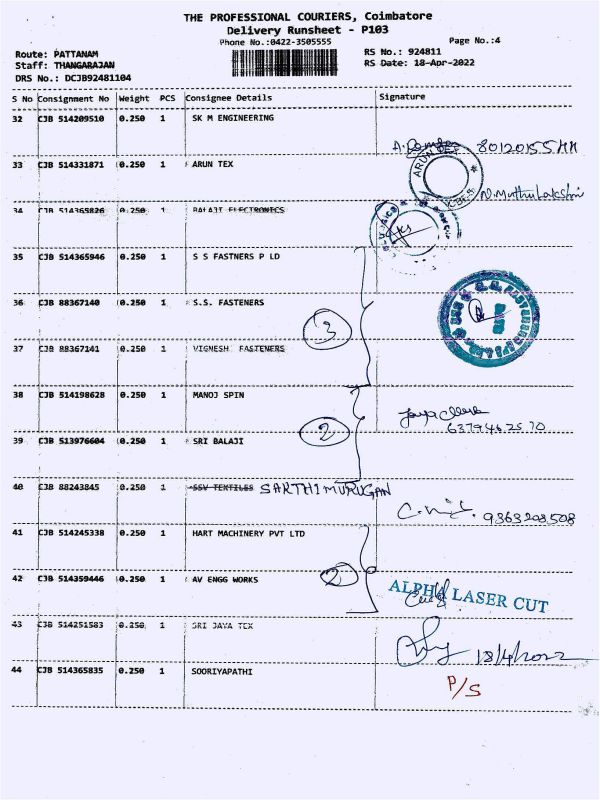 THE PROFESSIONAL COURIERS, Coimbatore
Delivery Runsheet - P103
Phone No.:0422-3505555 Page No.:4
Route: PATTANAM RS No.: 924811
Staff: THANGARAJAN RS Date: 18-Apr-2022
DRS No.: DCJB92481104
S No Consignment No Weight PCS Consignee Details Signature
32 CJB 514209510 0.250 1 SK M ENGINEERING
33 CJB 514331871 0.250 1 ARUN TEX
34 CJB 514365826 0.250 1 BALAJI ELECTRONICS
35 CJB 514365946 0.250 1 S S FASTNERS P LD
36 CJB 88367140 0.250 1 S.S. FASTENERS
3
37 CJB 88367141 0.250 1 VIGNESH FASTENERS
38 CJB 514198628 0.250 1 MANOJ SPIN
2
39 CJB 513976604 0.250 1 SRI BALAJI
40 CJB 88243845 0.250 1 SSV TEXTILES SAKTHIMURUGAN
9363208508
41 CJB 514245338 0.250 1 HART MACHINERY PVT LTD
2
42 CJB 514359446 0.250 1 AV ENGG WORKS
ALPHA LASER CUT
43 CJB 514251583 0.250 1 SRI JAYA TEX
18/4/2022
44 CJB 514365835 0.250 1 SOORIYAPATHI
P/S